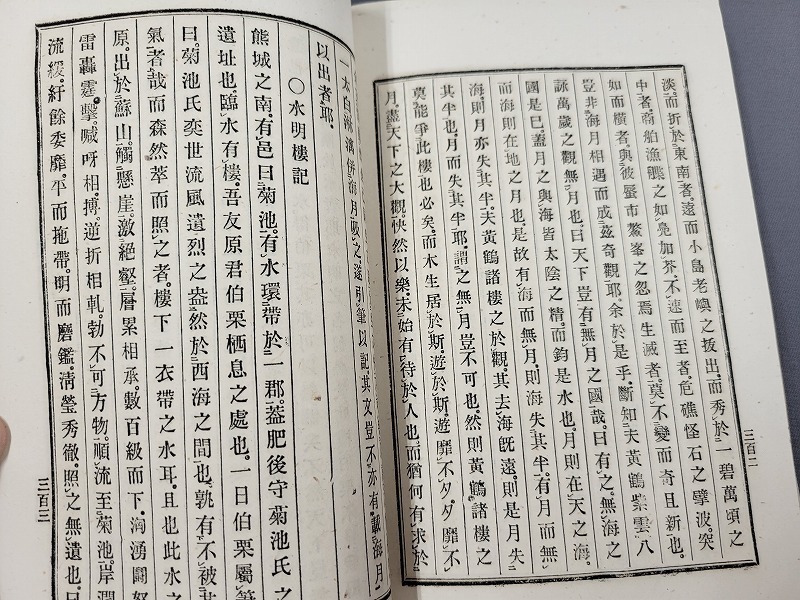 淡。而折於東南者。遠而小島老嶼之拔出。而秀於一碧萬頃之
中者。商船漁艓之如鳧如芥。不速而至者。危礁怪石之擘波。突
如而橫者。與彼蜃市鰲峯之忽焉生滅者。莫不變而奇且新也。
豈非海月相遇而成玆奇觀耶。余於是乎。斷知夫黃鶴紫雲八
詠萬歲之觀無月也。曰天下豈有無月之國哉。曰有之。無海之
國是已。蓋月之與海皆太陰之精。而鈞是水也。月則在天之海。
而海則在地之月也。是故有海而無月。則海失其半。有月而無
海則月亦失其半。夫黃鶴諸樓之於觀。其去海旣遠。則是月失
其半也。月而失其半耶。謂之無月豈不可也。然則黃鶴諸樓之
莫能爭此樓也必矣。而木生居於斯。遊於斯。遊靡不夕。夕靡不
月。盡天下之大觀。怏然以樂。未始有待於人也。而猶何有求於
三百二
之。遂引筆以記。其文豈不亦有
以出者耶。
○水明樓記
熊城之南。有邑曰菊池。有水環帶於一郡。蓋肥後守菊池氏之
遺址也。臨水有樓。吾友原君伯栗栖息之處也。一日伯栗屬
曰。菊池氏奕世流風遺烈之盎然於西海之間也。孰有不被其
氣者哉。而森然萃而照之者。樓下一衣帶之水耳。且也此水之
原。出於蘇山。觸懸崖。激絕壑。層累相承。數百級而下。洶湧鬪
雷轟霆擊。喊呀相搏。逆折相軋。勃不可方物。順流至菊池。岸
流緩。紆餘委靡。平而拖帶。明而磨鑑。淸瑩秀徹。照之無遺也。
三百三